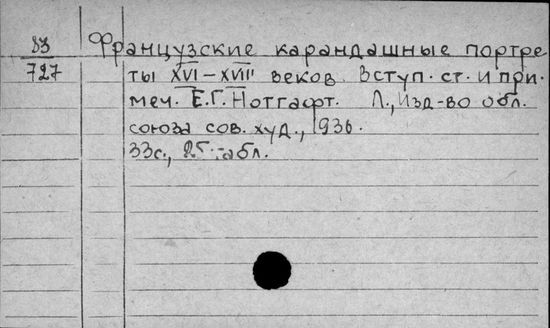 83
727
Французские карандашные портре
ты XVI–XVIII веков. Вступ. ст. и при.
меч. Е.Г. Нотгафт. Л., Изд-во обл.
союза сов. худ., 1936.
33с., табл.